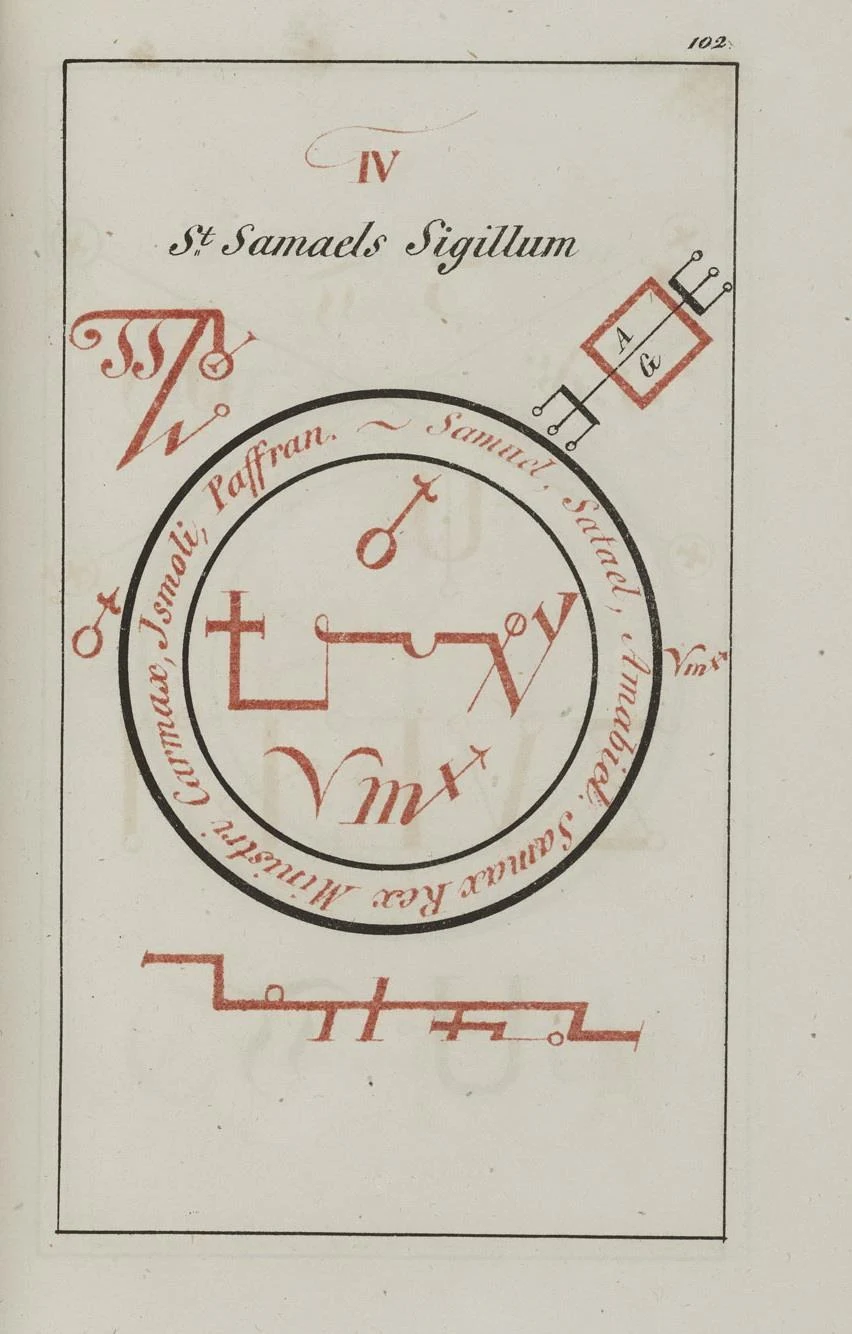 102.
IV
St. Samaels Sigillum
A
G
Samael, Satael, Amabiel. Samax Rex Ministri Carmax, Ismoli, Paffran. ~
Vmx
Vmx